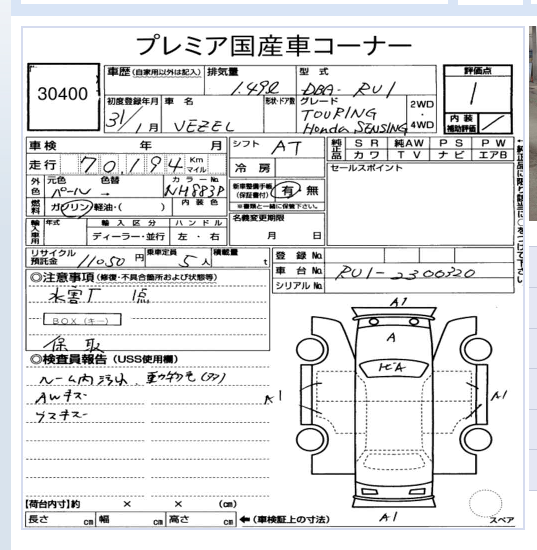 プレミア国産車コーナー
30400
車歴(自家用以外は記入) 排気量 型式 評価点
1.49ℓ DBA- RU1
初度登録年月 車名 形状・ドア数 グレード 2WD
31/1月 VEZEL TOURING
Honda SENSING 4WD
内装補助評価
車検 年 月 シフト AT 純正品 SR 純AW PS PW
カワ TV ナビ エアB
走行 70,194 Km マイル 冷房 セールスポイント
外色 元色 パール 色替 → カラーNo. NH883P 新車整備手帳(保証書付) 有 無
※書類と一緒に保管下さい。
燃料 ガソリン・軽油・( ) 内装色 名義変更期限
月 日
輸入車用 年式 輸入区分 ハンドル
ディーラー・並行 左・右
リサイクル預託金 11050円 乗車定員 5人 積載量 t
登録No.
車台No. RU1-2300320
シリアルNo.
◎注意事項(修復・不具合箇所および状態等)
BOX(キー)
保 取
◎検査員報告(USS使用欄)
ルーム内汚れ
AWキズ-
A1
A
A1
A1
A1
【荷台内寸】約 × × (cm)
長さ cm 幅 cm 高さ cm ←(車検証上の寸法)
スペア